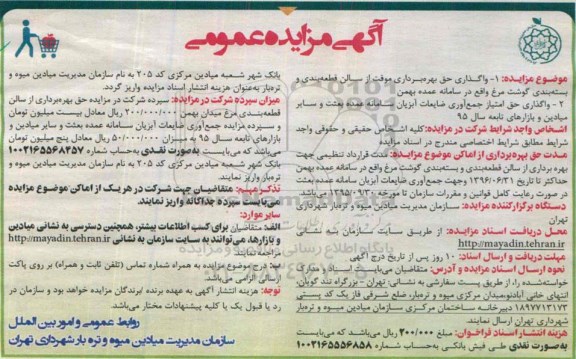 آگهی مزایده عمومی
موضوع مزایده: ۱- واگذاری حق بهره‌برداری موقت از سالن قطعه‌بندی و
بسته‌بندی گوشت مرغ واقع در سامانه عمده بهمن
۲- واگذاری حق امتیاز جمع‌آوری ضایعات آبزیان سامانه عمده بعثت و سایر
میادین و بازارهای تابعه سال ۹۵
اشخاص واجد شرایط شرکت در مزایده: کلیه اشخاص حقیقی و حقوقی واجد
شرایط مطابق شرایط اختصاصی مندرج در اسناد مزایده
مدت حق بهره‌برداری از اماکن موضوع مزایده: مدت قرارداد تنظیمی جهت
بهره برداری از سالن قطعه‌بندی و بسته‌بندی گوشت مرغ واقع در سامانه عمده بهمن
حداکثر تا تاریخ ۱۳۹۶/۰۶/۳۱ وجهت جمع‌آوری ضایعات آبزیان سامانه عمده بعثت
در صورت رعایت کامل قوانین و مقررات سازمان تا مورخه ۱۳۹۵/۰۹/۳۰ می‌باشد.
دستگاه برگزارکننده مزایده: سازمان مدیریت میادین میوه و تره‌بار شهرداری
تهران
محل دریافت اسناد مزایده: از طریق سایت سازمان به نشانی
http://mayadin.tehran.ir
مهلت دریافت و ارسال اسناد: ۱۰ روز پس از تاریخ درج آگهی
نحوه ارسال اسناد مزایده و آدرس: متقاضیان می‌بایست اسناد و مدارک
خواسته‌شده را، از طریق پست سفارشی به نشانی: تهران - بزرگراه تندگویان،
انتهای خانی آبادنو، میدان مرکزی میوه و تره‌بار، ضلع شرقی فاز یک کد پستی
۱۸۹۷۷۱۳۱۷۳ دبیرخانه ساختمان مرکزی سازمان میادین میوه و تره‌بار
شهرداری تهران ارسال نمایند.
هزینه انتشار اسناد فراخوان: مبلغ ۲۰۰/۰۰۰ ریال می‌باشد که می‌بایست
به صورت نقدی طی فیش بانکی به‌حساب شماره ۱۰۰۲۱۶۵۵۵۶۸۵۸
بانک شهر شعبه میادین مرکزی کد ۲۰۵ به نام سازمان مدیریت میادین میوه و
تره‌بار به‌عنوان هزینه انتشار اسناد مزایده واریز گردد.
میزان سپرده شرکت در مزایده: سپرده شرکت در مزایده حق بهره‌برداری از سالن
قطعه‌بندی مرغ میدان بهمن ۲۰۰/۰۰۰/۰۰۰ ریال معادل بیست میلیون تومان
و سپرده مزایده جمع‌آوری ضایعات آبزیان سامانه عمده بعثت و سایر میادین و
بازارهای تابعه سال ۹۵ به میزان ۵۰/۰۰۰/۰۰۰ ریال معادل پنج میلیون تومان
می‌باشد که می‌بایست به‌صورت نقدی به‌حساب شماره ۱۰۰۲۱۶۵۵۶۸۴۵۷
بانک شهر شعبه میادین مرکزی کد ۲۰۵ به نام سازمان مدیریت میادین میوه و
تره‌بار واریز نمایند.
تذکر مهم: متقاضیان جهت شرکت در هر یک از اماکن موضوع مزایده
می‌بایست سپرده جداگانه واریز نمایند.
سایر موارد:
الف: متقاضیان برای کسب اطلاعات بیشتر، همچنین دسترسی به نشانی میادین
و بازارها، می‌توانند به سایت سازمان به نشانی http://mayadin.tehran.ir
مراجعه نمایند.
ب: درج موضوع مزایده به همراه شماره تماس (تلفن ثابت و همراه) بر روی پاکت
ارسالی الزامی می‌باشد.
توجه: هزینه انتشار آگهی به عهده برنده /برندگان مزایده خواهد بود و سازمان در
رد یا قبول یک یا کلیه پیشنهادات مختار می‌باشد.
روابط عمومی و امور بین الملل
سازمان مدیریت میادین میوه و تره بار شهرداری تهران